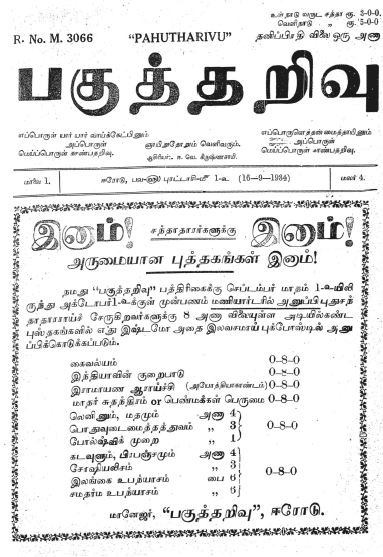 உள்நாடு வருட சந்தா ரூ. 3-0-0.
வெளிநாடு „ ரூ. 5-0-0
R. No. M. 3066 "PAHUTHARIVU" தனிப்பிரதி விலை ஒரு அணா
பகுத்தறிவு
எப்பொருள் யார் யார் வாய்க்கேட்பினும்
அப்பொருள்
மெய்ப்பொருள் காண்பதறிவு.
ஞாயிறுதோறும் வெளிவரும்.
ஆசிரியர்:- ஈ. வெ. கிருஷ்ணசாமி.
எப்பொருளெத்தன்மைத்தாயினும்
அப்பொருள்
மெய்ப்பொருள் காண்பதறிவு.
மாலை 1. ஈரோடு, பவ-௵ புரட்டாசி-௴ 1-உ (16-9-1934) மலர் 4.
இனும்! சந்தாதாரர்களுக்கு இனும்!
அருமையான புத்தகங்கள் இனும்!
நமது "பகுத்தறிவு" பத்திரிகைக்கு செப்டம்பர் மாதம் 1-உயிலி
ருந்து அக்டோபர் 1-உக்குள் முன்பணம் மணியார்டரில் அனுப்பி புதுசந்
தாதாரராய்ச் சேருகிறவர்களுக்கு 8 அணா விலையுள்ள அடியில்கண்ட
புஸ்தகங்களில் எது இஷ்டமோ அதை இலவசமாய் புக்போஸ்டில் அனு
ப்பிக்கொடுக்கப்படும்.
கைவல்யம் 0-8-0
இந்தியாவின் குறைபாடு 0-8-0
இராமாயண ஆராய்ச்சி (அயோத்தியாகாண்டம்) 0-8-0
மாதர் சுதந்திரம் or பெண்மக்கள் பெருமை 0-8-0
லெனினும், மதமும் அணா 4
பொதுவுடைமைத்தத்துவம் „ 3 0-8-0
போல்ஷ்விக் முறை „ 1
கடவுளும், பிரபஞ்சமும் அணா 4
சோஷியலிசம் „ 3
இலங்கை உபந்யாசம் பை 6 0-8-0
சமதர்ம உபந்யாசம் „ 6
மானேஜர், "பகுத்தறிவு", ஈரோடு.